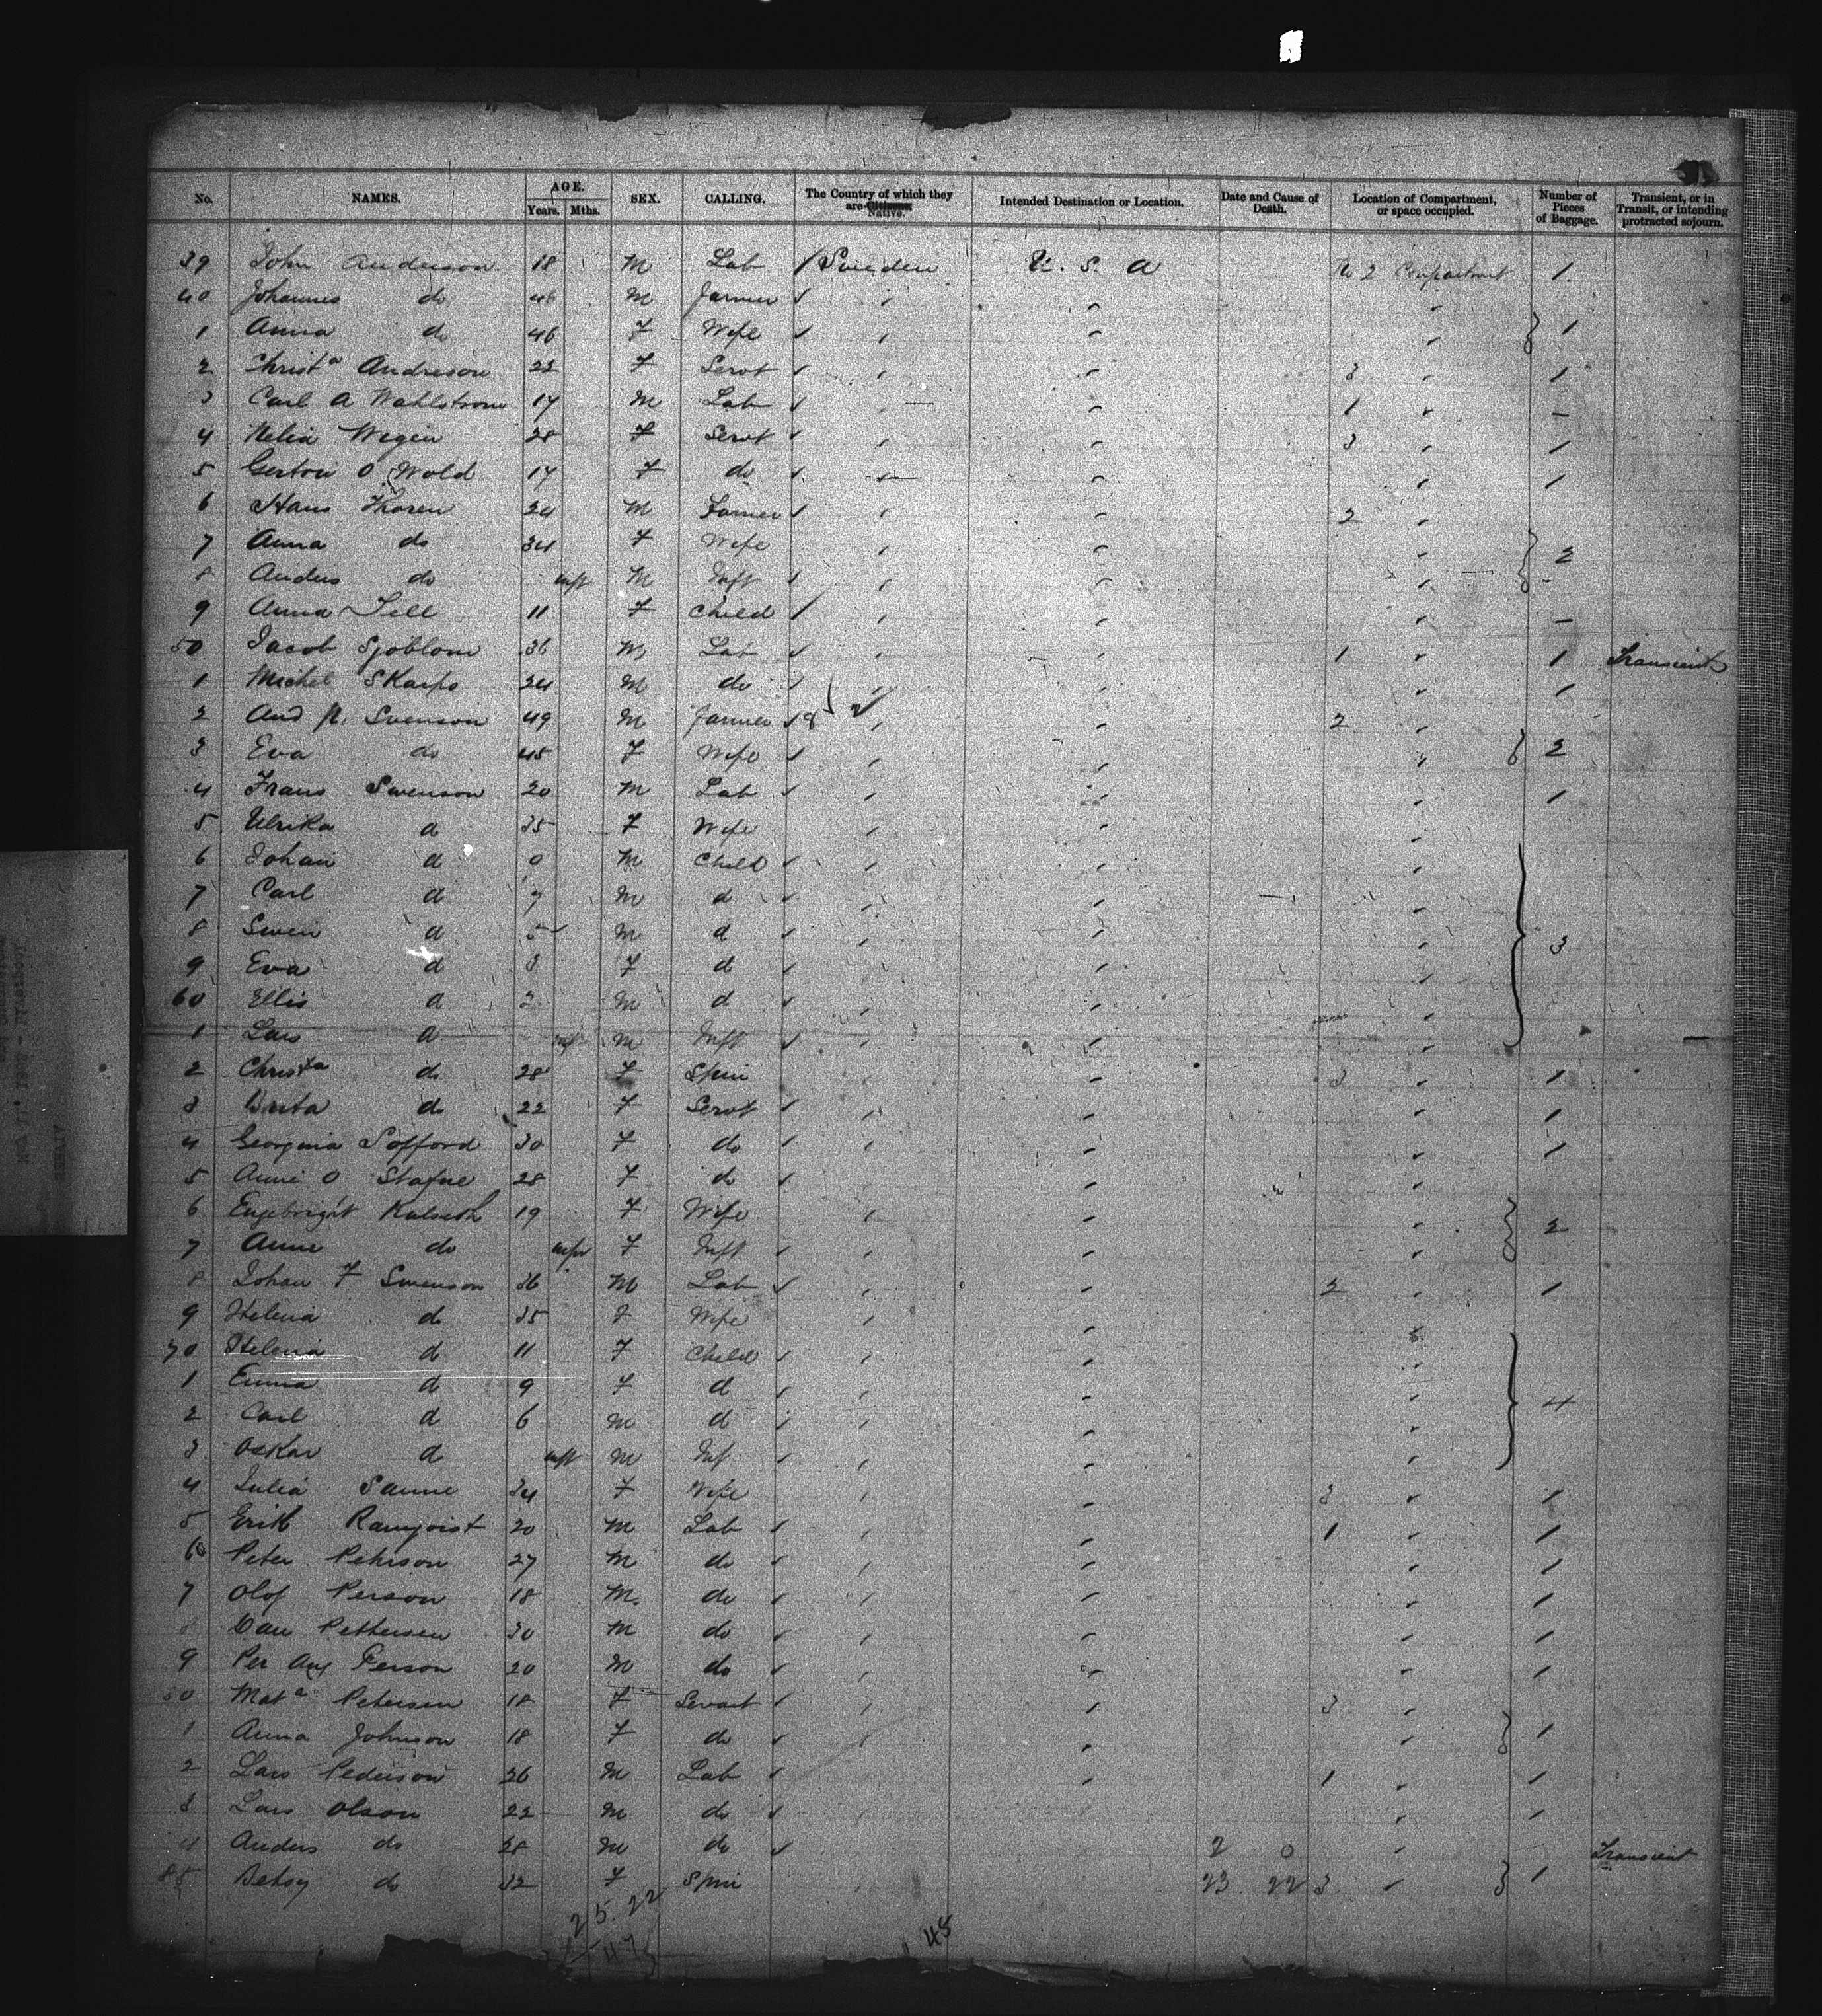 No. NAMES. AGE. Years. Mths. SEX. CALLING. The Country of which they are Citizens Native. Intended Destination or Location. Date and Cause of Death. Location of Compartment, or space occupied. Number of Pieces of Baggage. Transient, or in Transit, or intending protracted sojourn.
39 John Anderson 18 M Lab Sweden U. S. A No 2 Compartment 1
40 Johannes do 46 M Farmer
1 Anna do 46 F Wife 1
2 Christa Andreson 22 F Servt 3 1
3 Carl A Wahlstrom 17 M Lab 1 –
4 Nelia Wegin 28 F Servt 3 1
5 Gertou O Wold 17 F do 1
6 Hans Thoren 24 M Farmer 2
7 Anna do 34 F Wife 2
8 Anders do inft M Inft
9 Anna Sell 11 F Child –
50 Jacob Sjoblom 36 M Lab 1 1 Transient
1 Michel Skarpo 24 M do 1
2 And P. Svenson 49 M Farmer 2
3 Eva do 45 F Wife 2
4 Frans Swenson 20 M Lab 1
5 Ulrika d 35 F Wife
6 Johan d 9 M Child
7 Carl d 7 M d
8 Swen d 5 M d 3
9 Eva d 3 F d
60 Ellis d 2 M d
1 Lars d inft M Inft
2 Christa do 28 F Spin 3 1
3 Brita do 22 F Servt 1
4 Georgina Sofford 30 F do 1
5 Anne O Stafne 28 F do
6 Engebright Kulseth 19 F Wife 2
7 Anne do inft F Inft
8 Johan F Swenson 36 M Lab 2 1
9 Helena do 35 F Wife
70 Helena d 11 F Child
1 Emma d 9 F d
2 Carl d 6 M d 4
3 Oskar d inft M Inf
4 Julia Sanne 34 F Wife 3 1
5 Erik Ramqvist 20 M Lab 1 1
6 Peter Pehrson 27 M do 1
7 Olof Person 18 M. do 1
8 Dan Pettersen 30 M do 1
9 Per Aug Person 20 M do 1
80 Mata Petersen 18 F Servant 3
1 Anna Johnson 18 F do 1
2 Lars Pederson 26 M Lab 1 1
3 Lars Olson 22 M do 1
4 Anders do 28 M do 2 0 Transient
85 Betsy do 32 F Spin 23 22 3 1
25. 22
47
48